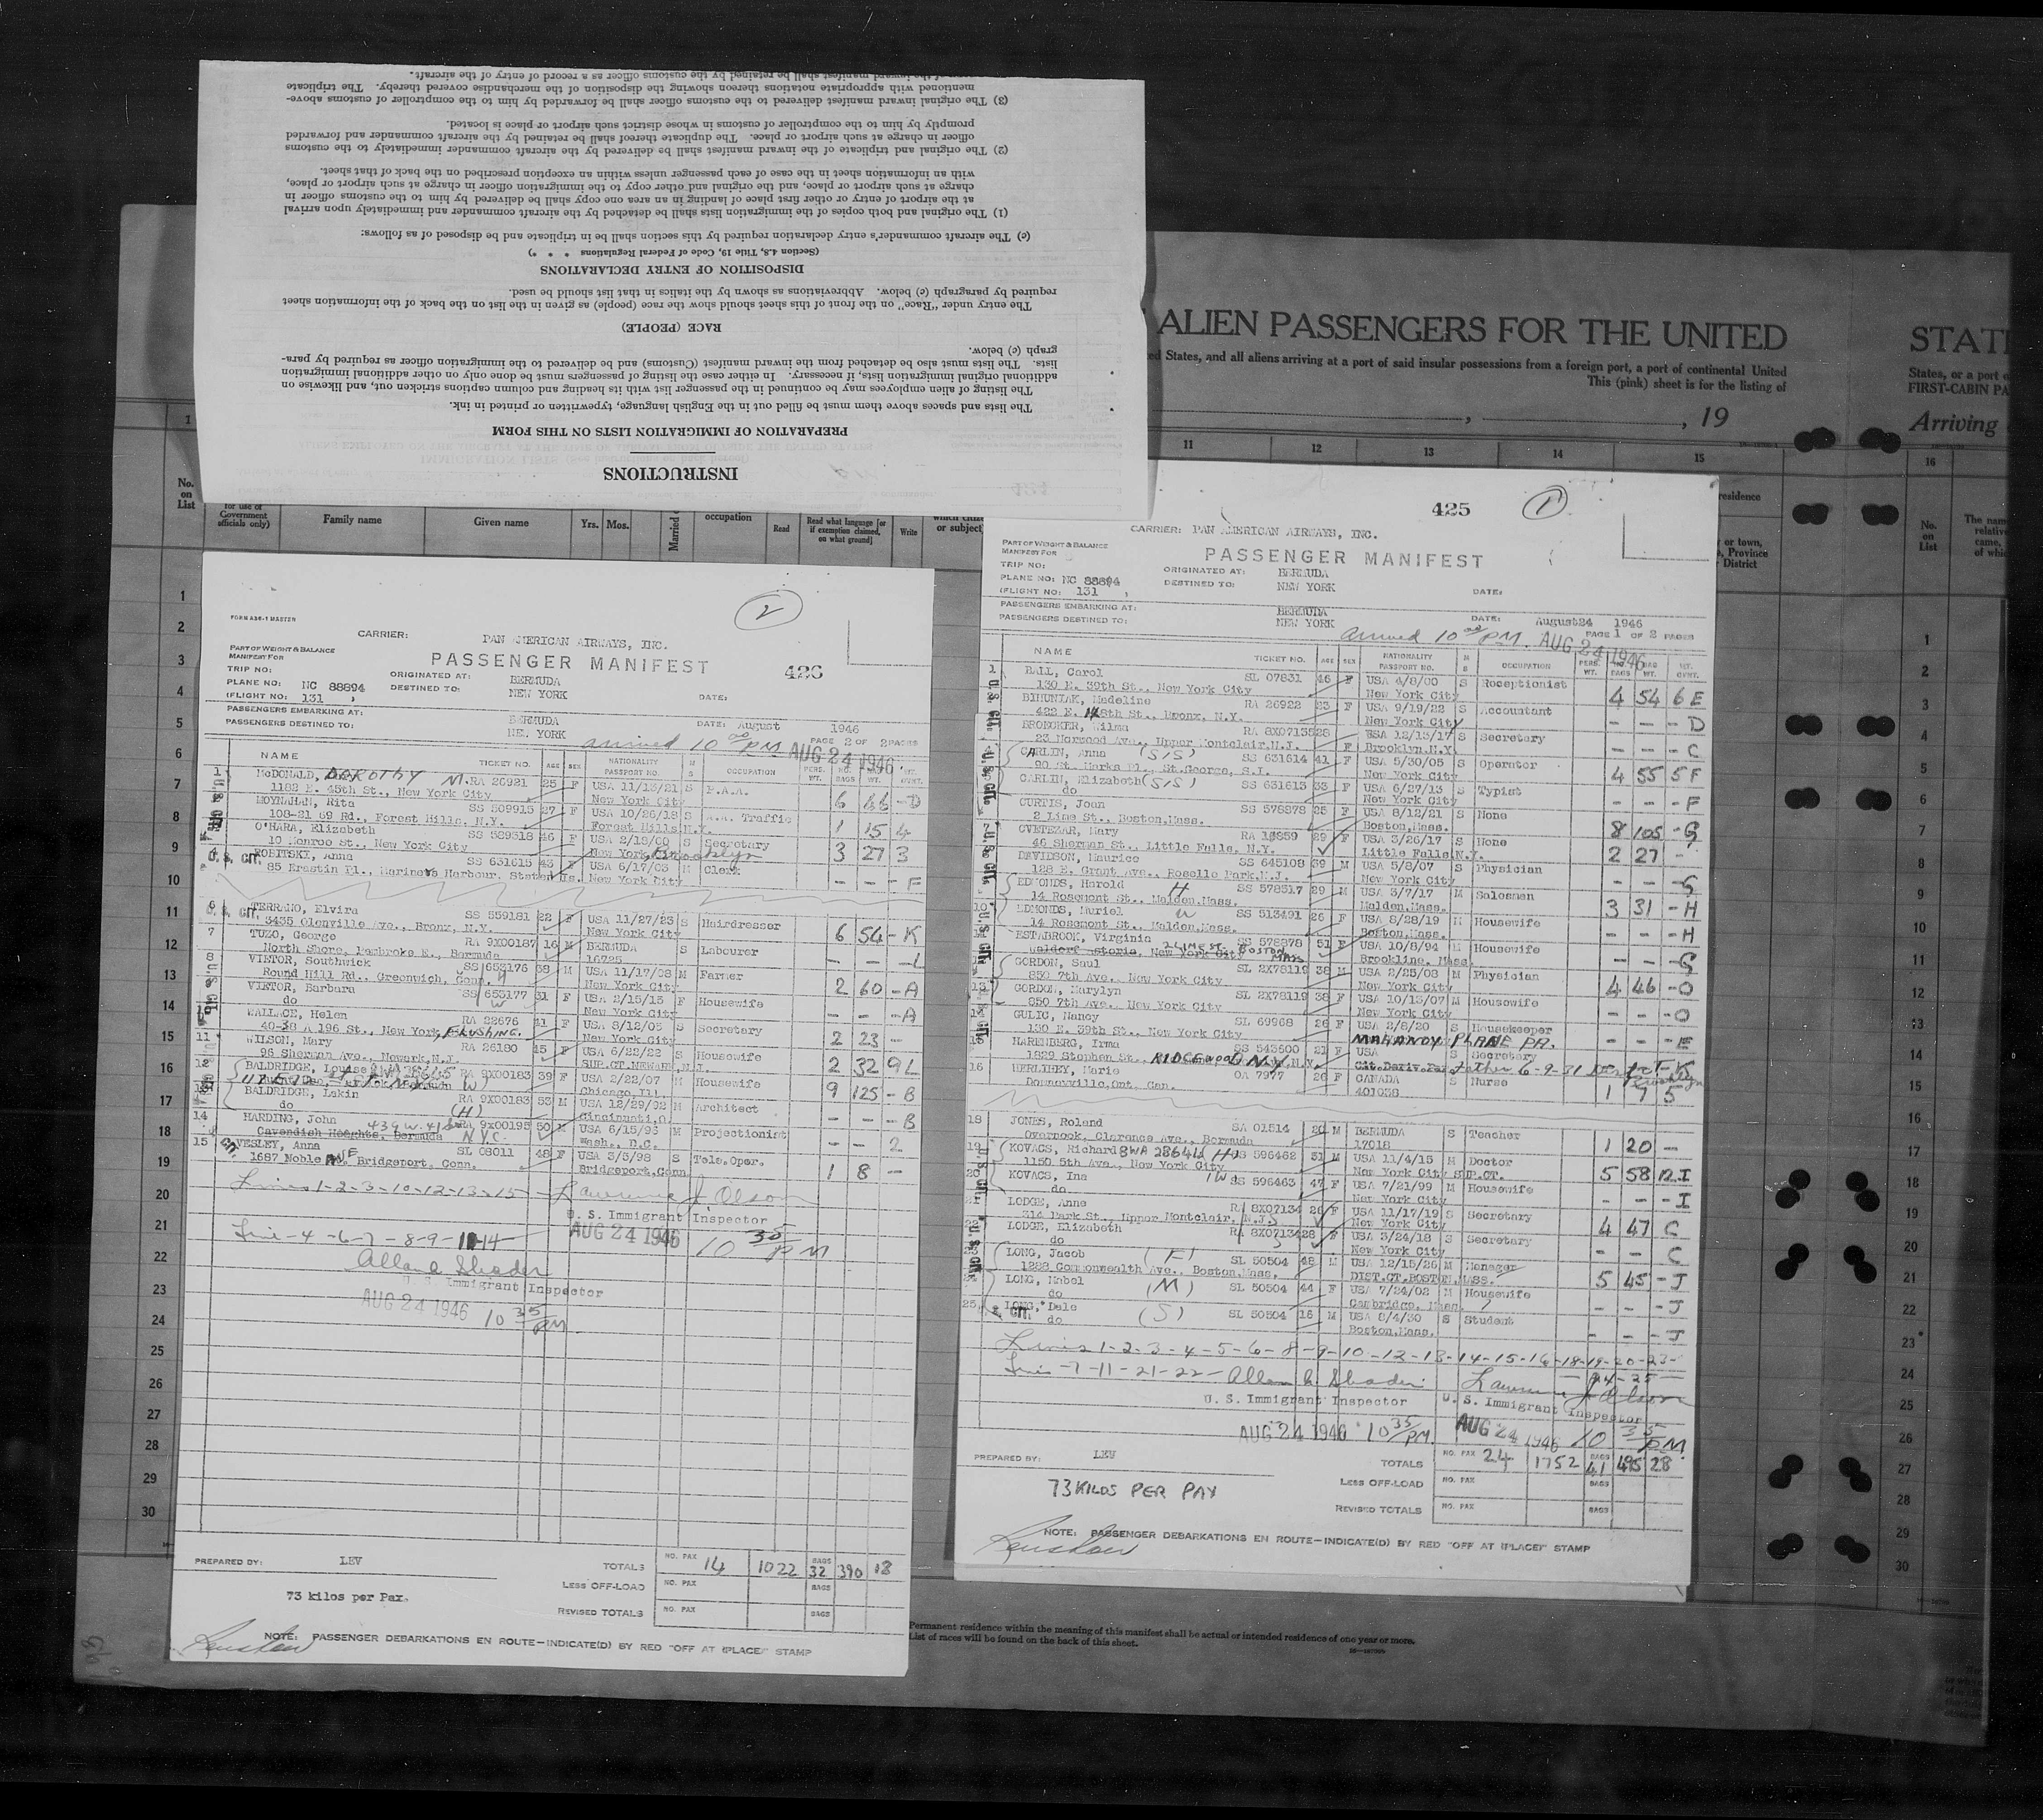 INSTRUCTIONS
PREPARATION OF IMMIGRATION LISTS ON THIS FORM
The lists and spaces above them must be filled out in the English language, typewritten or printed in ink.
The listing of alien employees may be continued in the passenger list with its heading and column captions stricken out, and likewise on
additional original immigration lists, if necessary. In either case the listing of passengers must be done only on other additional immigration
lists. The lists must also be detached from the inward manifest (Customs) and be delivered to the immigration officer as required by para-
graph (c) below.
RACE (PEOPLE)
The entry under "Race" on the front of this sheet should show the race (people) as given in the list on the back of the information sheet
required by paragraph (c) below. Abbreviations as shown by the italics in that list should be used.
DISPOSITION OF ENTRY DECLARATIONS
(Section 4.8, Title 19, Code of Federal Regulations * * *)
(c) The aircraft commander's entry declaration required by this section shall be in triplicate and be disposed of as follows:
(1) The original and both copies of the immigration lists shall be detached by the aircraft commander and immediately upon arrival
at the airport of entry or other first place of landing in an area one copy shall be delivered by him to the customs officer in
charge at such airport or place, and the original and other copy to the immigration officer in charge at such airport or place,
with an information sheet in the case of each passenger unless within an exception prescribed on the back of that sheet.
(2) The original and triplicate of the inward manifest shall be delivered by the aircraft commander immediately to the customs
officer in charge at such airport or place. The duplicate thereof shall be retained by the aircraft commander and forwarded
promptly by him to the comptroller of customs in whose district such airport or place is located.
(3) The original inward manifest delivered to the customs officer shall be forwarded by him to the comptroller of customs above-
mentioned with appropriate notations thereon showing the disposition of the merchandise covered thereby. The triplicate
copy of the inward manifest shall be retained by the customs officer as a record of entry of the aircraft.
ALIEN PASSENGERS FOR THE UNITED STAT
ed States, and all aliens arriving at a port of said insular possessions from a foreign port, a port of continental United
States, or a port o
This (pink) sheet is for the listing of
FIRST-CABIN PA
, 19
Arriving
1 11 12 13 14 15 16
No. on List
for use of Government officials only)
Family name
Given name
Yrs. Mos.
occupation
Read
Read what language [or if exemption claimed, on what ground]
Write
or subject
425
1
CARRIER: PAN AMERICAN AIRWAYS, INC.
PART OF WEIGHT & BALANCE MANIFEST FOR
PASSENGER MANIFEST
TRIP NO:
PLANE NO: NC 88894
(FLIGHT NO: 131 )
ORIGINATED AT: BERMUDA
DESTINED TO: NEW YORK
DATE:
PASSENGERS EMBARKING AT: BERMUDA
PASSENGERS DESTINED TO: NEW YORK
DATE: August24 1946
Arrived 10 00 PM. AUG 24 1946
PAGE 1 OF 2 PAGES
NAME TICKET NO. AGE SEX NATIONALITY PASSPORT NO. M S OCCUPATION PERS. WT. NO. BAGS BAG WT.
1 BALL, Carol SL 07831 46 F USA 4/8/00 S Receptionist
130 E. 39th St., New York City New York City 4 54 6 E
BIHUNIAK, Madeline RA 26922 23 F USA 9/19/22 S Accountant
422 E. 148th St., Bronx, N.Y. New York City - - - D
BRONCKER, Wilma RA 8X07135 28 USA 12/13/17 S Secretary
23 Norwood Ave., Upper Montclair,N.J. F Brooklyn,N.Y. - - - C
CARLIN, Anna (SIS) SS 631614 41 F USA 5/30/05 S Operator
90 St. Marks Pl., St.George, S.I. New York City 4 55 5 F
CARLIN, Elizabeth (SIS) SS 631613 33 F USA 6/27/13 S Typist
do New York City - - - F
CURTIS, Joan SS 578878 25 F USA 8/12/21 S None
2 Lime St., Boston,Mass. Boston,Mass. 8 105 - G
CVETEZAR, Mary RA 18859 29 F USA 3/26/17 S None
46 Sherman St., Little Falls, N.Y. Little Falls N.Y. 2 27 -
DAVIDSON, Maurice SS 645108 39 M USA 5/8/07 S Physician
128 E. Grant Ave., Roselle Park,N.J. New York City - - - G
EDMONDS, Harold H SS 578517 29 M USA 3/7/17 M Salesman
14 Rosemont St., Malden,Mass. Malden,Mass. 3 31 - H
10 EDMONDS, Muriel W SS 513491 26 F USA 8/28/19 M Housewife
14 Rosemont St., Malden,Mass. Boston,Mass. - - - H
ESTABROOK, Virginia SS 578878 51 F USA 10/8/94 M Housewife
Waldorf Astoria, New York City 2 LIME ST. BOSTON MASS Brookline, Mass. - - - G
GORDON, Saul SL 2X78119 38 M USA 2/25/08 M Physician
850 7th Ave., New York City New York City 4 46 - O
GORDON, Marylyn SL 2X78119 38 F USA 10/13/07 M Housewife
850 7th Ave., New York City New York City - - - O
GULIC, Nancy SL 69968 26 F USA 2/8/20 S Housekeeper
130 E. 39th St., New York City MAHANOY PLANE PA. - - - E
HARENBERG, Irma SS 543500 21 F USA S Secretary
1829 Stephen St., RIDGEWOOD N.Y. Cit.Deriv. father 6-9-31 K
16 HERLIHEY, Marie OA 7977 26 F CANADA S Nurse
Downeyville,Ont, Can. 401038 1 7 5
18 JONES, Roland SA 01514 20 M BERMUDA S Teacher
Overnook, Clarence Ave., Bermuda 17018 1 20 -
19 KOVACS, Richard 8WA 28644 (H) SS 596462 51 M USA 11/4/15 M Doctor
1150 5th Ave., New York City New York City SUP.CT. 5 58 12 I
20 KOVACS, Ina W SS 596463 47 F USA 7/21/99 M Housewife
do New York City - - - I
LODGE, Anne RA 8X07134 26 F USA 11/17/19 S Secretary
314 Park St., Upper Montclair, N.J. New York City 4 47 C
LODGE, Elizabeth RA 8X07134 28 F USA 3/24/18 S Secretary
do New York City - - C
LONG, Jacob (F) SL 50504 48 M USA 12/15/26 M Manager
1228 Commonwealth Ave., Boston,Mass. DIST.CT.BOSTON,MASS. 5 45 - J
LONG, Mabel (M) SL 50504 44 F USA 7/24/02 M Housewife
do Cambridge, Mass. - - - J
25 LONG, Dale (S) SL 50504 16 M USA 8/4/30 S Student
do Boston,Mass. - - - J
Lines 1-2-3-4-5-6-8-9-10-12-13-14-15-16-18-19-20-23-
24-25-
Lines -7-11-21-22- Allan A. Shader Lawrence J. Olson
U. S. Immigrant Inspector U. S. Immigrant Inspector
AUG 24 1946 10 35 PM. AUG 24 1946 10 35 PM
PREPARED BY: LEV
TOTALS NO. PAX 24 1752 BAGS 41 495 28
73 KILOS PER PAX
LESS OFF-LOAD NO. PAX BAGS
REVISED TOTALS NO. PAX BAGS
NOTE: PASSENGER DEBARKATIONS EN ROUTE—INDICATE(D) BY RED "OFF AT (PLACE)" STAMP
2
FORM ADR-1 MASTER
CARRIER: PAN AMERICAN AIRWAYS, INC.
PART OF WEIGHT & BALANCE MANIFEST FOR
PASSENGER MANIFEST 426
TRIP NO:
PLANE NO: NC 88894
(FLIGHT NO: 131 )
ORIGINATED AT: BERMUDA
DESTINED TO: NEW YORK
DATE:
PASSENGERS EMBARKING AT: BERMUDA
PASSENGERS DESTINED TO: NEW YORK
DATE: August 1946
arrived 10 00 PM AUG 24 1946
PAGE 2 OF 2 PAGES
NAME TICKET NO. AGE SEX NATIONALITY PASSPORT NO. M S OCCUPATION PERS. WT. NO. BAGS
1 McDONALD, DOROTHY M. RA 26921 25 F USA 11/13/21 S P.A.A.
1182 E. 45th St., New York City New York City 6 46 - D
MOYNAHAN, Rita SS 509915 27 F USA 10/26/18 S A.A. Traffic
108-21 69 Rd., Forest Hills, N.Y. Forest Hills N.Y. 1 15 4
O'HARA, Elizabeth SS 589318 46 F USA 2/18/00 S Secretary
10 Monroe St., New York City New York, Brooklyn 3 27 3
ROBITSKY, Anna SS 631615 43 F USA 6/17/03 M Clerk
85 Erastin Pl., Mariners Harbour, Staten Is. New York City - - - F
6 TERRANO, Elvira SS 559181 22 F USA 11/27/23 S Hairdresser
3435 Olenville Ave., Bronx, N.Y. New York City 6 54 - K
7 TUZO, George RA 9X00187 16 M BERMUDA S Labourer
North Shore, Pembroke E., Bermuda 16725 - - - L
8 VIETOR, Southwick SS 653176 38 M USA 11/17/08 M Farmer
Round Hill Rd., Greenwich, Conn. H New York City 2 60 - A
VIETOR, Barbara SS 653177 31 F USA 2/15/15 F Housewife
do W New York City - - - A
WALLACE, Helen RA 22676 41 F USA 8/12/05 S Secretary
40-38 A 196 St., New York, FLUSHING. New York City 2 23 -
11 WILSON, Mary RA 26180 45 F USA 6/22/22 S Housewife
96 Sherman Ave., Newark,N.J. SUP.CT.NEWARK N.J. 2 32 9 L
12 BALDRIDGE, Louise 8WA 28645 RA 9X00183 39 F USA 2/22/07 M Housewife
(W) Chicago,Ill. 9 125 - B
BALDRIDGE, Lakin RA 9X00183 53 M USA 12/29/92 M Architect
do (H) Cincinnati,O. - - - B
14 HARDING, John RA 9x00195 50 M USA 6/15/95 M Projectionist
Cavendish Heights, Bermuda 439 W. 41 St. N.Y.C. Wash., D.C. - - 2
15 VESLEY, Anna SL 08011 48 F USA 3/3/98 S Tele.Oper.
1687 Noble AVE Bridgeport, Conn. Bridgeport,Conn 1 8 -
Lines 1-2-3-10-12-13-15- Lawrence J. Olson
U. S. Immigrant Inspector
AUG 24 1946 10 35 PM
Line -4-6-7-8-9-11-14-
Allan A Shader
U. S. Immigrant Inspector
AUG 24 1946 10 35 PM
PREPARED BY: LEV
TOTALS NO. PAX 14 1022 BAGS 32 390 18
73 kilos per Pax.
LESS OFF-LOAD NO. PAX BAGS
REVISED TOTALS NO. PAX BAGS
NOTE: PASSENGER DEBARKATIONS EN ROUTE—INDICATE(D) BY RED "OFF AT (PLACE)" STAMP
Permanent residence within the meaning of this manifest shall be actual or intended residence of one year or more.
List of races will be found on the back of this sheet.